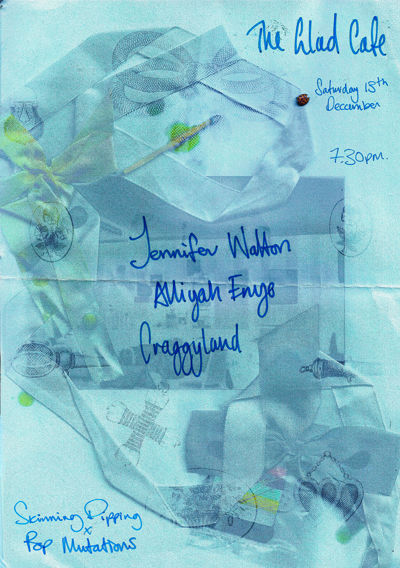 The Glad Cafe
Saturday 15th
December
7.30pm.
Jennifer Walton
Alliyah Enyo
Craggyland
Skinning Dipping
x
Pop Mutations